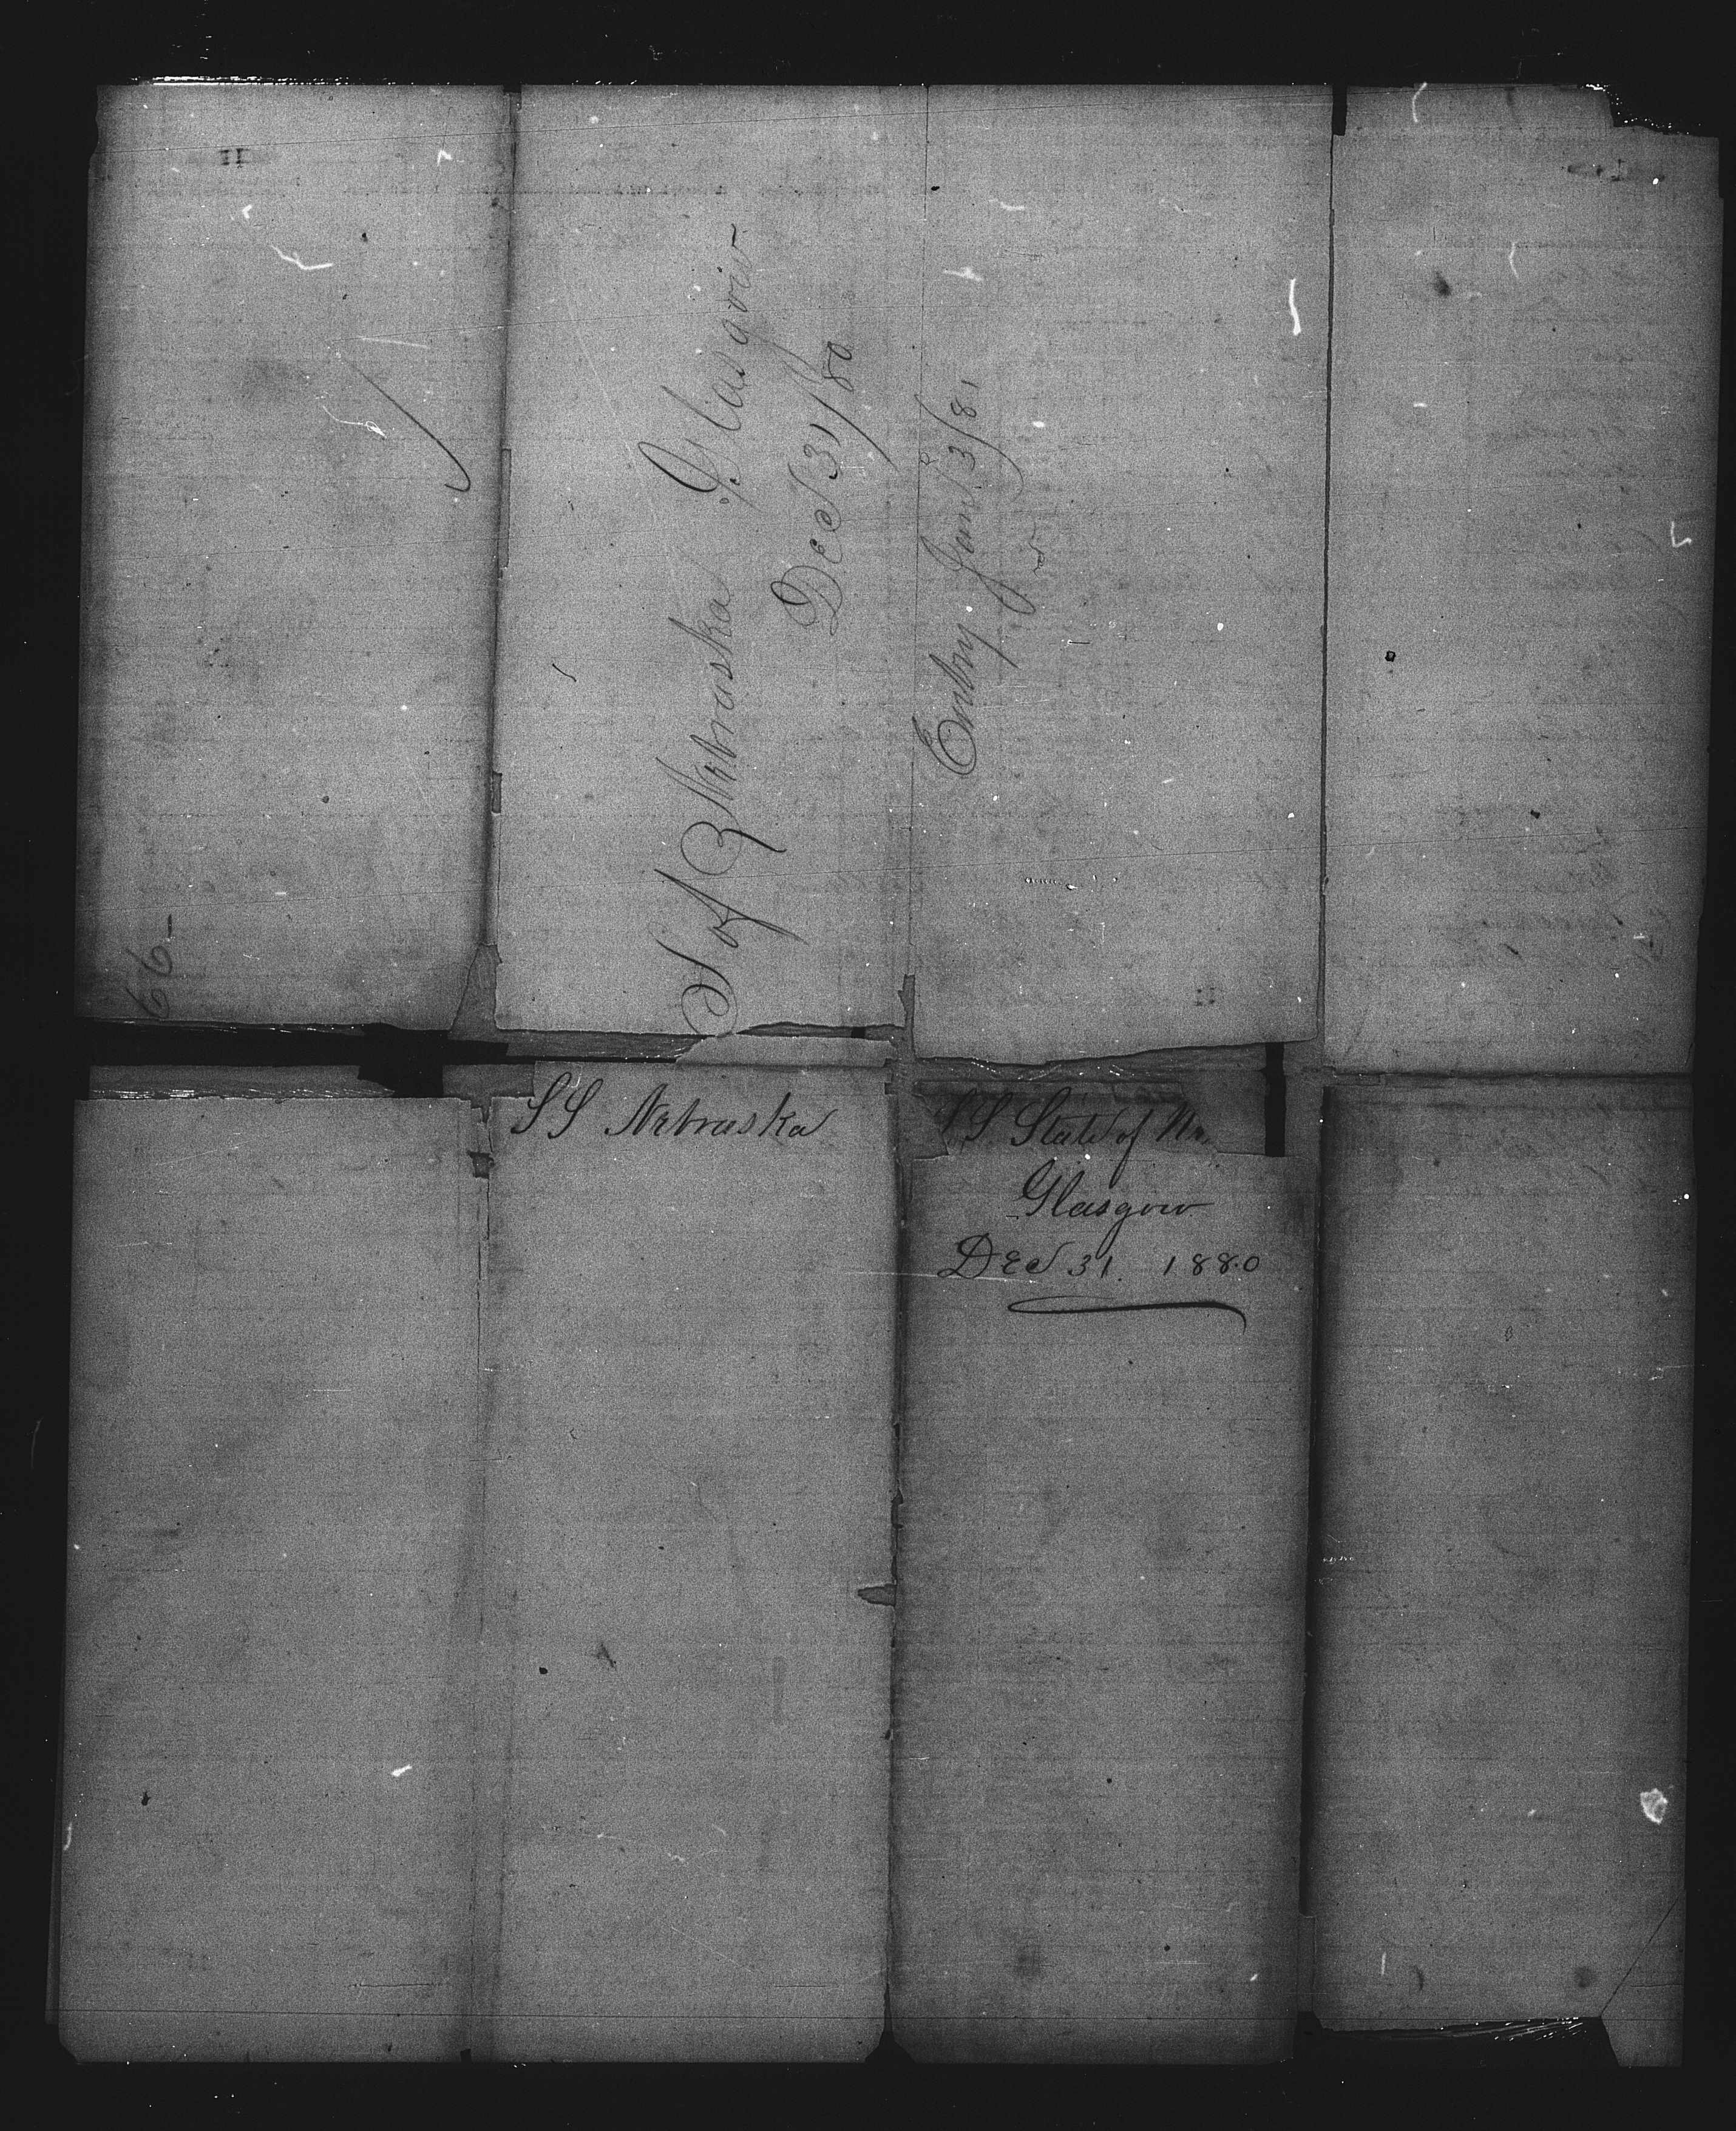 S of Nebraska Glasgow
Dec 31/80
Entry Jan 3/81
66-
SS Nebraska
SS State of Ne
Glasgow
Dec 31. 1880